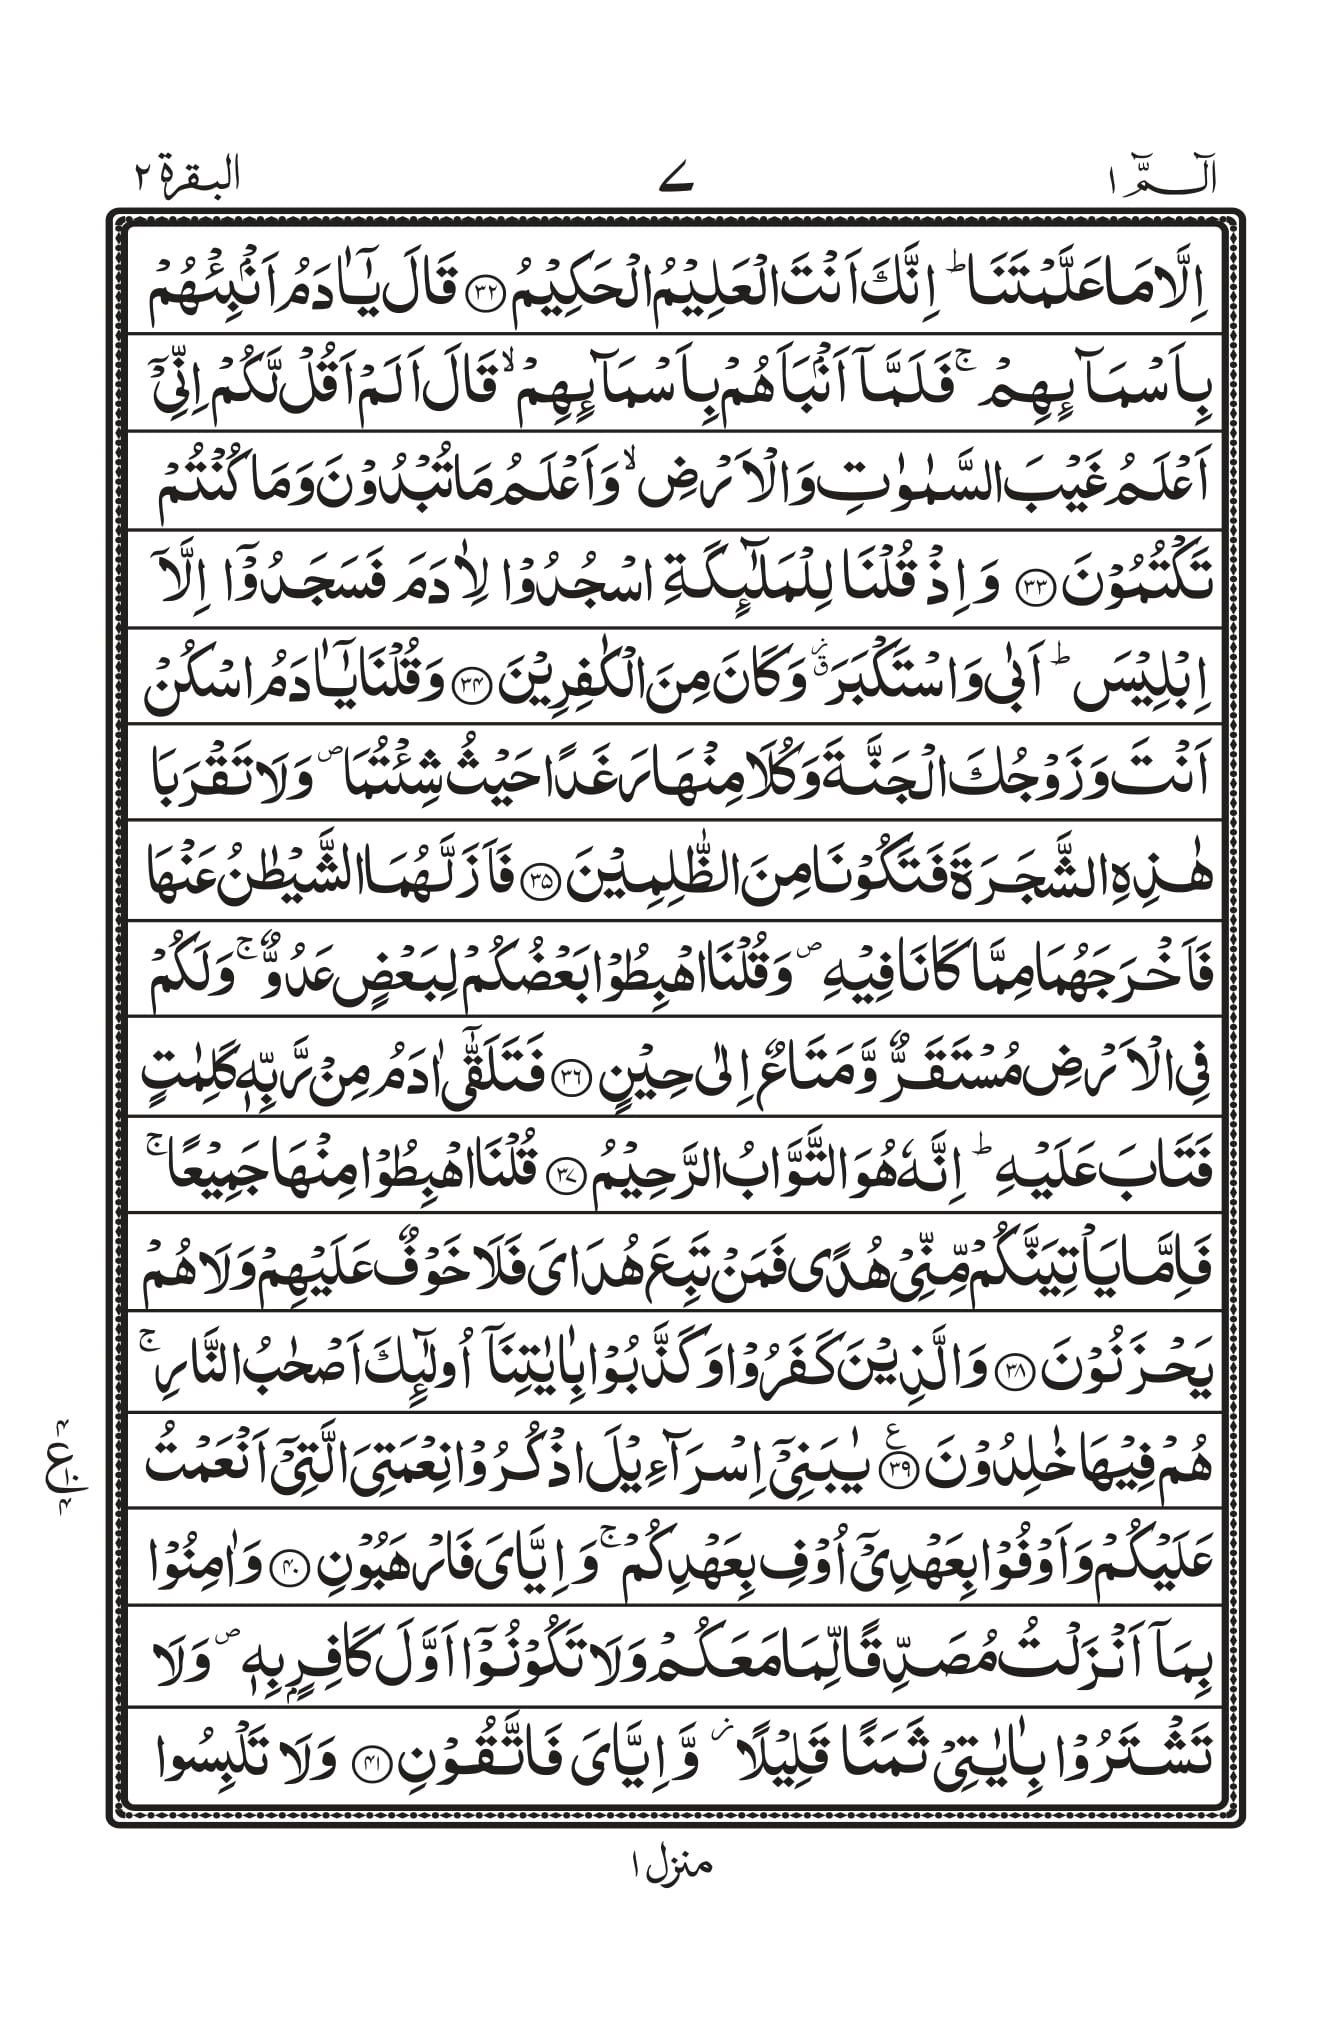 الٓـمّٓ ١ ٧ البقرة ٢
اِلَّا مَا عَلَّمْتَنَا ؕ اِنَّكَ اَنْتَ الْعَلِيْمُ الْحَكِيْمُ ﴿۳۲﴾ قَالَ يٰۤـاٰدَمُ اَنْۢبِئْهُمْ
بِاَسْمَآئِهِمْ ۚ فَلَمَّاۤ اَنْۢبَاَهُمْ بِاَسْمَآئِهِمْ ۙ قَالَ اَلَمْ اَقُلْ لَّكُمْ اِنِّىْۤ
اَعْلَمُ غَيْبَ السَّمٰوٰتِ وَالْاَرْضِ ۙ وَاَعْلَمُ مَا تُبْدُوْنَ وَمَا كُنْتُمْ
تَكْتُمُوْنَ ﴿۳۳﴾ وَاِذْ قُلْنَا لِلْمَلٰٓئِكَةِ اسْجُدُوْا لِاٰدَمَ فَسَجَدُوْۤا اِلَّاۤ
اِبْلِيْسَ ؕ اَبٰى وَاسْتَكْبَرَ ۗ وَكَانَ مِنَ الْكٰفِرِيْنَ ﴿۳۴﴾ وَقُلْنَا يٰۤـاٰدَمُ اسْكُنْ
اَنْتَ وَزَوْجُكَ الْجَنَّةَ وَكُلَا مِنْهَا رَغَدًا حَيْثُ شِئْتُمَا ۪ وَلَا تَقْرَبَا
هٰذِهِ الشَّجَرَةَ فَتَكُوْنَا مِنَ الظّٰلِمِيْنَ ﴿۳۵﴾ فَاَزَلَّهُمَا الشَّيْطٰنُ عَنْهَا
فَاَخْرَجَهُمَا مِمَّا كَانَا فِيْهِ ۪ وَقُلْنَا اهْبِطُوْا بَعْضُكُمْ لِبَعْضٍ عَدُوٌّ ۚ وَلَكُمْ
فِى الْاَرْضِ مُسْتَقَرٌّ وَّمَتَاعٌ اِلٰى حِيْنٍ ﴿۳۶﴾ فَتَلَقّٰٓى اٰدَمُ مِنْ رَّبِّهٖ كَلِمٰتٍ
فَتَابَ عَلَيْهِ ؕ اِنَّهٗ هُوَ التَّوَّابُ الرَّحِيْمُ ﴿۳۷﴾ قُلْنَا اهْبِطُوْا مِنْهَا جَمِيْعًا ۚ
فَاِمَّا يَاْتِيَنَّكُمْ مِّنِّىْ هُدًى فَمَنْ تَبِعَ هُدَاىَ فَلَا خَوْفٌ عَلَيْهِمْ وَلَا هُمْ
يَحْزَنُوْنَ ﴿۳۸﴾ وَالَّذِيْنَ كَفَرُوْا وَكَذَّبُوْا بِاٰيٰتِنَاۤ اُولٰٓئِكَ اَصْحٰبُ النَّارِ ۚ
هُمْ فِيْهَا خٰلِدُوْنَ ﴿۳۹﴾ ع يٰبَنِىْۤ اِسْرَآءِيْلَ اذْكُرُوْا نِعْمَتِىَ الَّتِىْۤ اَنْعَمْتُ
عَلَيْكُمْ وَاَوْفُوْا بِعَهْدِىْۤ اُوْفِ بِعَهْدِكُمْ ۚ وَاِيَّاىَ فَارْهَبُوْنِ ﴿۴۰﴾ وَاٰمِنُوْا
بِمَاۤ اَنْزَلْتُ مُصَدِّقًا لِّمَا مَعَكُمْ وَلَا تَكُوْنُوْۤا اَوَّلَ كَافِرٍۢ بِهٖ ۪ وَلَا
تَشْتَرُوْا بِاٰيٰتِىْ ثَمَنًا قَلِيْلًا ز وَّاِيَّاىَ فَاتَّقُوْنِ ﴿۴۱﴾ وَلَا تَلْبِسُوا
۴
ع ۱۰
۴
منزل ١